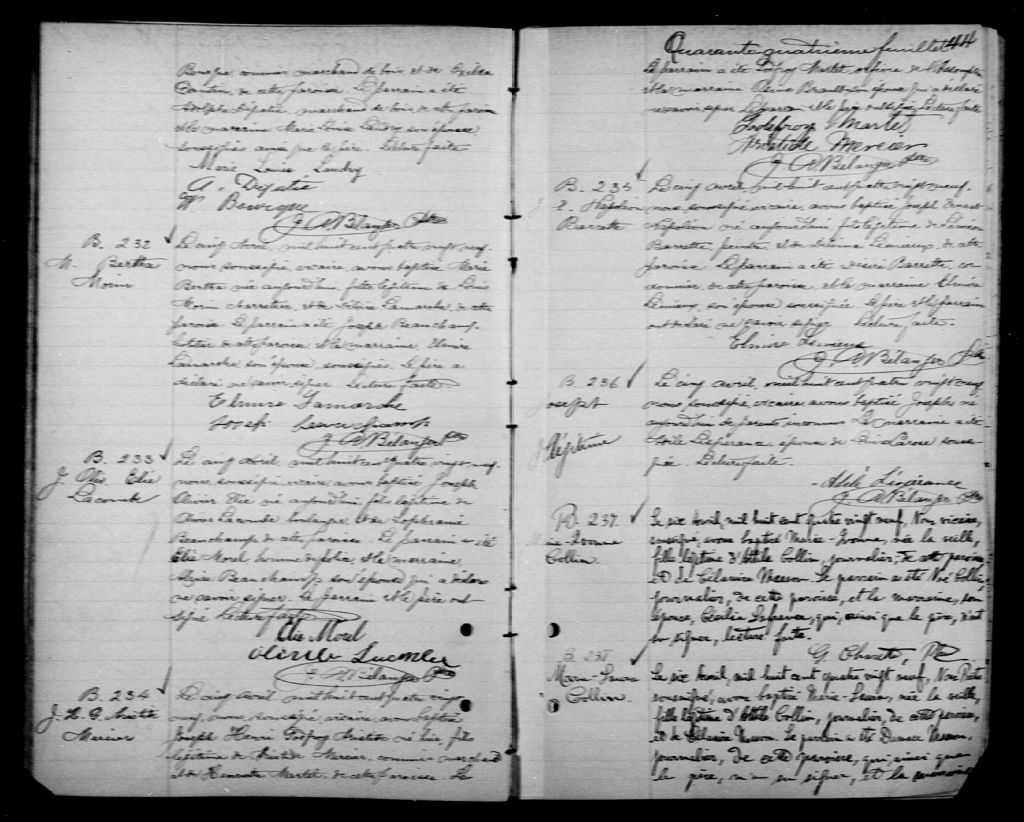 Bourque commis marchand de bois et de
Cantin, de cette paroisse. Le parrain a été
Adolphe Dépatie, marchand de bois de cette paroisse
et la marraine Marie Louise Landry son épouse
soussignés ainsi que le père. Lecture faite
Marie Louise Landry
A. Depatie
W. Bourque
J A Bélanger Ptre
B. 232
M. Bertha
Morin
Le cinq Avril, mil huit cent quatre vingt neuf,
nous soussigné, vicaire, avons baptisé Marie
Bertha née aujourd'hui, fille légitime de Louis
Morin charretier, et de Lamarche, de cette
paroisse. Le parrain a été Joseph Beauchamp,
de cette paroisse et la marraine, Elmire
Lamarche son épouse, soussignés. Le père a
déclaré ne savoir signer. Lecture faite
Elmire Lamarche
Joseph Beauchamp
J A Bélanger Ptre
B. 233
J. Oliv. Elie
Lacombe
Le cinq Avril, mil huit cent quatre vingt neuf,
nous soussigné vicaire, avons baptisé Joseph
Olivier Elie né aujourd'hui, fils légitime de
Lacombe boulanger et de Euphémie
Beauchamp de cette paroisse. Le parrain a été
Elie Morel homme de police et la marraine,
Beauchamp son épouse qui a déclaré
ne savoir signer. Le parrain et le père ont
signé Lecture faite
Elie Morel
Lacombe
J A Bélanger Ptre
B. 234
J. H. G. Aristide
Mercier
Le cinq Avril, mil huit cent quatre vingt
neuf, nous soussigné, vicaire, avons baptisé
Joseph Henri Godfroy Aristide né hier, fils
légitime de Aristide Mercier, commis marchand
et de Henriette Martel, de cette paroisse. Le
Quarante quatrième feuillet 44
Le parrain a été Godfroy Martel, orfèvre, de l'Assomption
et la marraine Brault son épouse qui a déclaré
ne savoir signer. Le parrain et le père ont signé. Lecture faite
Godefroy Martel
Aristide Mercier
J A Bélanger Ptre
B. 235
E. Napoléon
Barrette
Le cinq avril, mil huit cent quatre vingt neuf,
nous, soussigné vicaire, avons baptisé Joseph Ernest
Napoléon né aujourd'hui fils légitime de Siméon
Barrette, peintre, et de Lemieux, de cette
paroisse. Le parrain a été Désiré Barrette, cor
donnier, de cette paroisse, et la marraine Elmire
Lemieux, son épouse soussignée. Le père et le parrain
ont déclaré ne savoir signer Lecture faite.
Elmire Lemieux
J. A Bélanger Ptre
B. 236
Joseph
J. Septime
Le cinq avril, mil huit cent quatre vingt neuf
nous soussigné, vicaire avons baptisé Joseph né
aujourd'hui de parents inconnus. La marraine a été
Lespérance épouse de Louis sous
signée. Lecture faite.
Lespérance
J A Bélanger Ptre
B. 237
Marie-Yvonne
Collin.
Le six Avril, mil huit cent quatre vingt neuf, Nous vicaire,
soussigné, avons baptisé Marie-Yvonne, née la veille,
fille légitime d'Attale Collin, journalier, de cette paroisse
et de Célanire Masson. Le parrain a été Noé Collin,
journalier, de cette paroisse, et la marraine, son
épouse, Cécilia Lefebvre, qui, ainsi que le père, n'ont
su signer, lecture faite.
G. Ptre
B. 238
Marie-Laura
Collin.
Le six Avril, mil huit cent quatre vingt neuf, Nous Prêtre
soussigné, avons baptisé Marie-Laura, née la veille,
fille légitime d'Attale Collin, journalier, de cette paroisse,
et de Célanire Masson. Le parrain a été Damase Masson,
journalier, de cette paroisse, qui, ainsi que
le père, n'a su signer, et la marraine